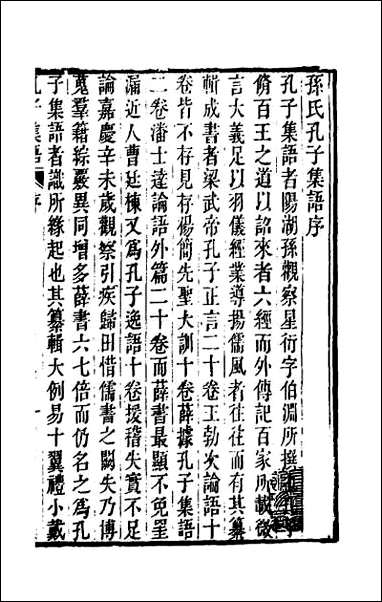 孫氏孔子集語序
孔子集語者陽湖孫觀察星衍字伯淵所撰
脩百王之道以詒來者六經而外傳記百家所載微
言大義足以羽儀經業導揚儒風者往往而有其纂
輯成書者梁武帝孔子正言二十卷王勃次論語十
卷皆不存見存楊簡先聖大訓十卷薛據孔子集語
二卷潘士達論語外篇二十卷而薛書最顯不免罣
漏近人曹廷棟又爲孔子逸語十卷援稽失實不足
論嘉慶辛未歲觀察引疾歸田惜儒書之闕失乃博
蒐羣籍綜覈異同增多薛書六七倍而仍名之爲孔
子集語者識所緣起也其纂輯大例易十翼禮小戴
孔子集語 序